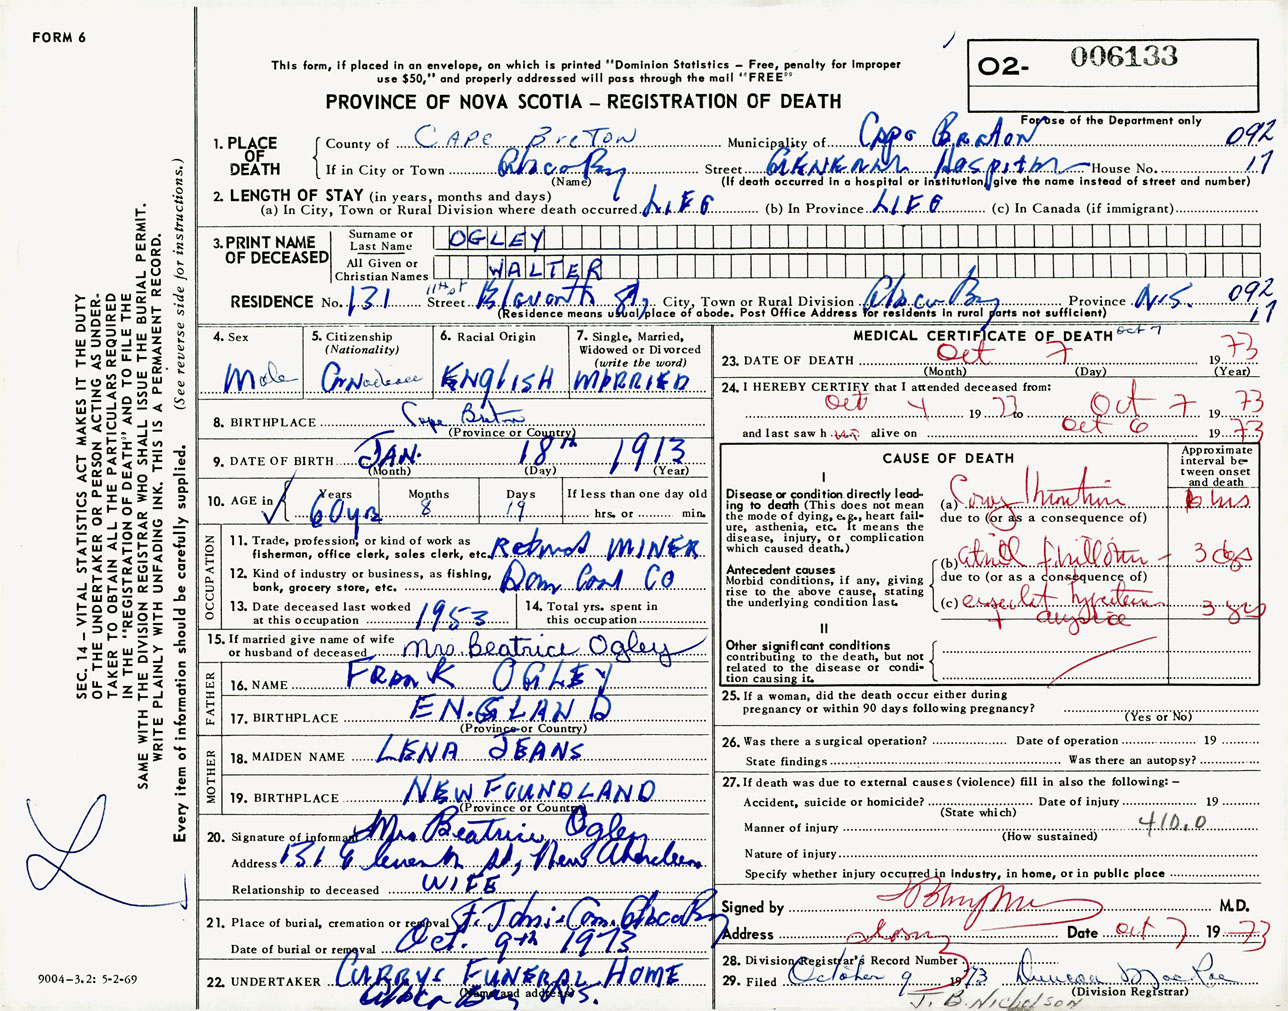 FORM 6
This form, if placed in an envelope, on which is printed "Dominion Statistics – Free, penalty for improper
use $50," and properly addressed will pass through the mail "FREE"
O2- 006133
PROVINCE OF NOVA SCOTIA – REGISTRATION OF DEATH
For use of the Department only
1. PLACE OF DEATH
County of CAPE BRETON Municipality of Cape Breton 092
If in City or Town Glace Bay Street GENERAL Hospital House No. 17
(Name) (If death occurred in a hospital or institution, give the name instead of street and number)
2. LENGTH OF STAY (in years, months and days)
(a) In City, Town or Rural Division where death occurred. LIFE (b) In Province LIFE (c) In Canada (if immigrant)
3. PRINT NAME OF DECEASED
Surname or Last Name OGLEY
All Given or Christian Names WALTER
RESIDENCE No. 131 Street 11th St City, Town or Rural Division Glace Bay Province N.S. 092
(Residence means usual place of abode. Post Office Address for residents in rural parts not sufficient) 17
4. Sex
Male
5. Citizenship
(Nationality)
Canadian
6. Racial Origin
ENGLISH
7. Single, Married,
Widowed or Divorced
(write the word)
MARRIED
8. BIRTHPLACE Cape Breton
(Province or Country)
9. DATE OF BIRTH JAN. 18th 1913
(Month) (Day) (Year)
10. AGE in Years Months Days If less than one day old
60 yrs 8 19 hrs. or min.
OCCUPATION
11. Trade, profession, or kind of work as
fisherman, office clerk, sales clerk, etc. Retired MINER
12. Kind of industry or business, as fishing,
bank, grocery store, etc. Dom Coal Co
13. Date deceased last worked
at this occupation 1953
14. Total yrs. spent in
this occupation
15. If married give name of wife
or husband of deceased Mrs. Beatrice Ogley
FATHER
16. NAME FRANK OGLEY
17. BIRTHPLACE ENGLAND
(Province or Country)
MOTHER
18. MAIDEN NAME LENA JEANS
19. BIRTHPLACE NEWFOUNDLAND
(Province or Country)
20. Signature of informant Mrs Beatrice Ogley
Address 131 Eleventh St, New Aberdeen
Relationship to deceased WIFE
21. Place of burial, cremation or removal St. John's Cem. Glace Bay
Date of burial or removal Oct. 9th 1973
22. UNDERTAKER CURRYS FUNERAL HOME
(Name and address)
Glace Bay N.S.
MEDICAL CERTIFICATE OF DEATH Oct 7
23. DATE OF DEATH Oct 7 1973
(Month) (Day) (Year)
24. I HEREBY CERTIFY that I attended deceased from:
Oct 4 1973 to Oct 7 1973
and last saw him alive on Oct 6 1973
CAUSE OF DEATH
Approximate interval between onset and death
I
Disease or condition directly lead-
ing to death (This does not mean
the mode of dying, e.g., heart fail-
ure, asthenia, etc. It means the
disease, injury, or complication
which caused death.)
(a) Thrombosis 6 hrs
due to (or as a consequence of)
Antecedent causes
Morbid conditions, if any, giving
rise to the above cause, stating
the underlying condition last.
(b) atrial fibrillation – 3 dys
due to (or as a consequence of)
(c) 3 yrs
II
Other significant conditions
contributing to the death, but not
related to the disease or condi-
tion causing it.
25. If a woman, did the death occur either during
pregnancy or within 90 days following pregnancy?
(Yes or No)
26. Was there a surgical operation? Date of operation 19
State findings Was there an autopsy?
27. If death was due to external causes (violence) fill in also the following: –
Accident, suicide or homicide? Date of injury 19
(State which)
Manner of injury 410.0
(How sustained)
Nature of injury
Specify whether injury occurred in industry, in home, or in public place
Signed by M.D.
Address Date Oct 7 1973
28. Division Registrar's Record Number
29. Filed October 9 1973 Duncan MacRae
(Division Registrar)
J. B. Nicholson
SEC. 14 – VITAL STATISTICS ACT MAKES IT THE DUTY
OF THE UNDERTAKER OR PERSON ACTING AS UNDER-
TAKER TO OBTAIN ALL THE PARTICULARS REQUIRED
IN THE "REGISTRATION OF DEATH" AND TO FILE THE
SAME WITH THE DIVISION REGISTRAR WHO SHALL ISSUE THE BURIAL PERMIT.
WRITE PLAINLY WITH UNFADING INK. THIS IS A PERMANENT RECORD.
Every item of information should be carefully supplied. (See reverse side for instructions.)
9004-3.2: 5-2-69